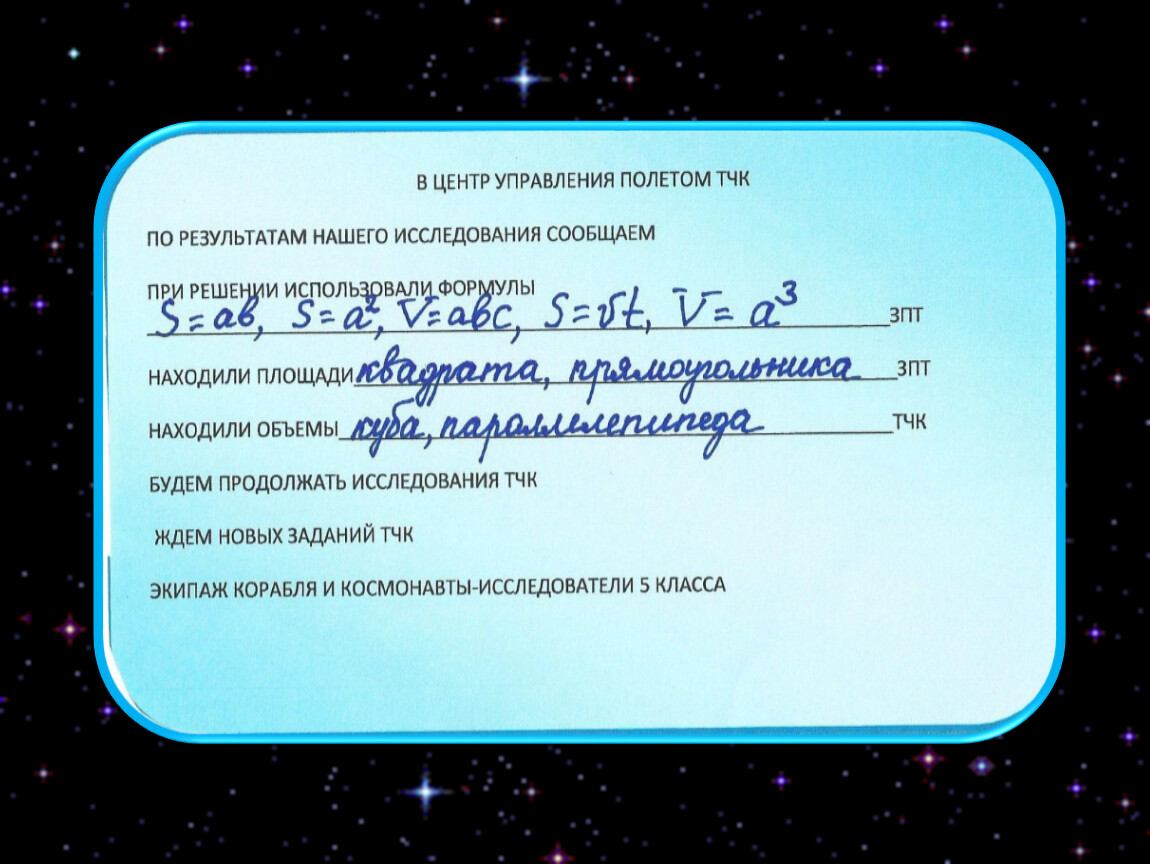 В ЦЕНТР УПРАВЛЕНИЯ ПОЛЕТОМ ТЧК
ПО РЕЗУЛЬТАТАМ НАШЕГО ИССЛЕДОВАНИЯ СООБЩАЕМ
ПРИ РЕШЕНИИ ИСПОЛЬЗОВАЛИ ФОРМУЛЫ
S=ав, S=a², V=авс, S=vt, V=a³ ЗПТ
НАХОДИЛИ ПЛОЩАДИ квадрата, прямоугольника ЗПТ
НАХОДИЛИ ОБЪЕМЫ куба, пароллелепипеда ТЧК
БУДЕМ ПРОДОЛЖАТЬ ИССЛЕДОВАНИЯ ТЧК
ЖДЕМ НОВЫХ ЗАДАНИЙ ТЧК
ЭКИПАЖ КОРАБЛЯ И КОСМОНАВТЫ-ИССЛЕДОВАТЕЛИ 5 КЛАССА